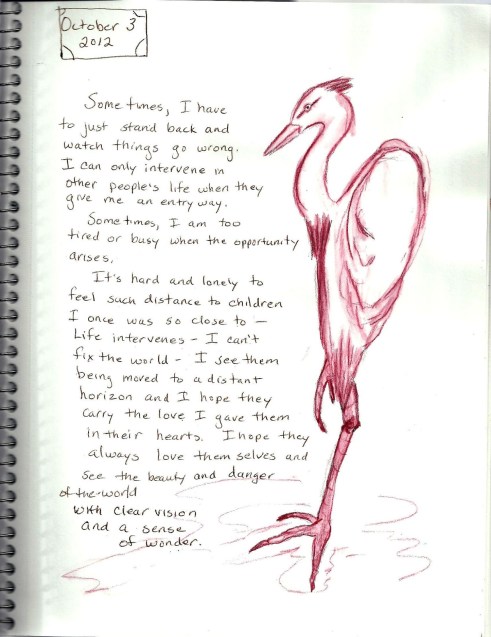 October 3
2012
Sometimes, I have
to just stand back and
watch things go wrong.
I can only intervene in
other people's life when they
give me an entry way.
Sometimes, I am too
tired or busy when the opportunity
arises.
It's hard and lonely to
feel such distance to children
I once was so close to —
Life intervenes - I can't
fix the world - I see them
being moved to a distant
horizon and I hope they
carry the love I gave them
in their hearts. I hope they
always love themselves and
see the beauty and danger
of the world
with clear vision
and a sense
of wonder.